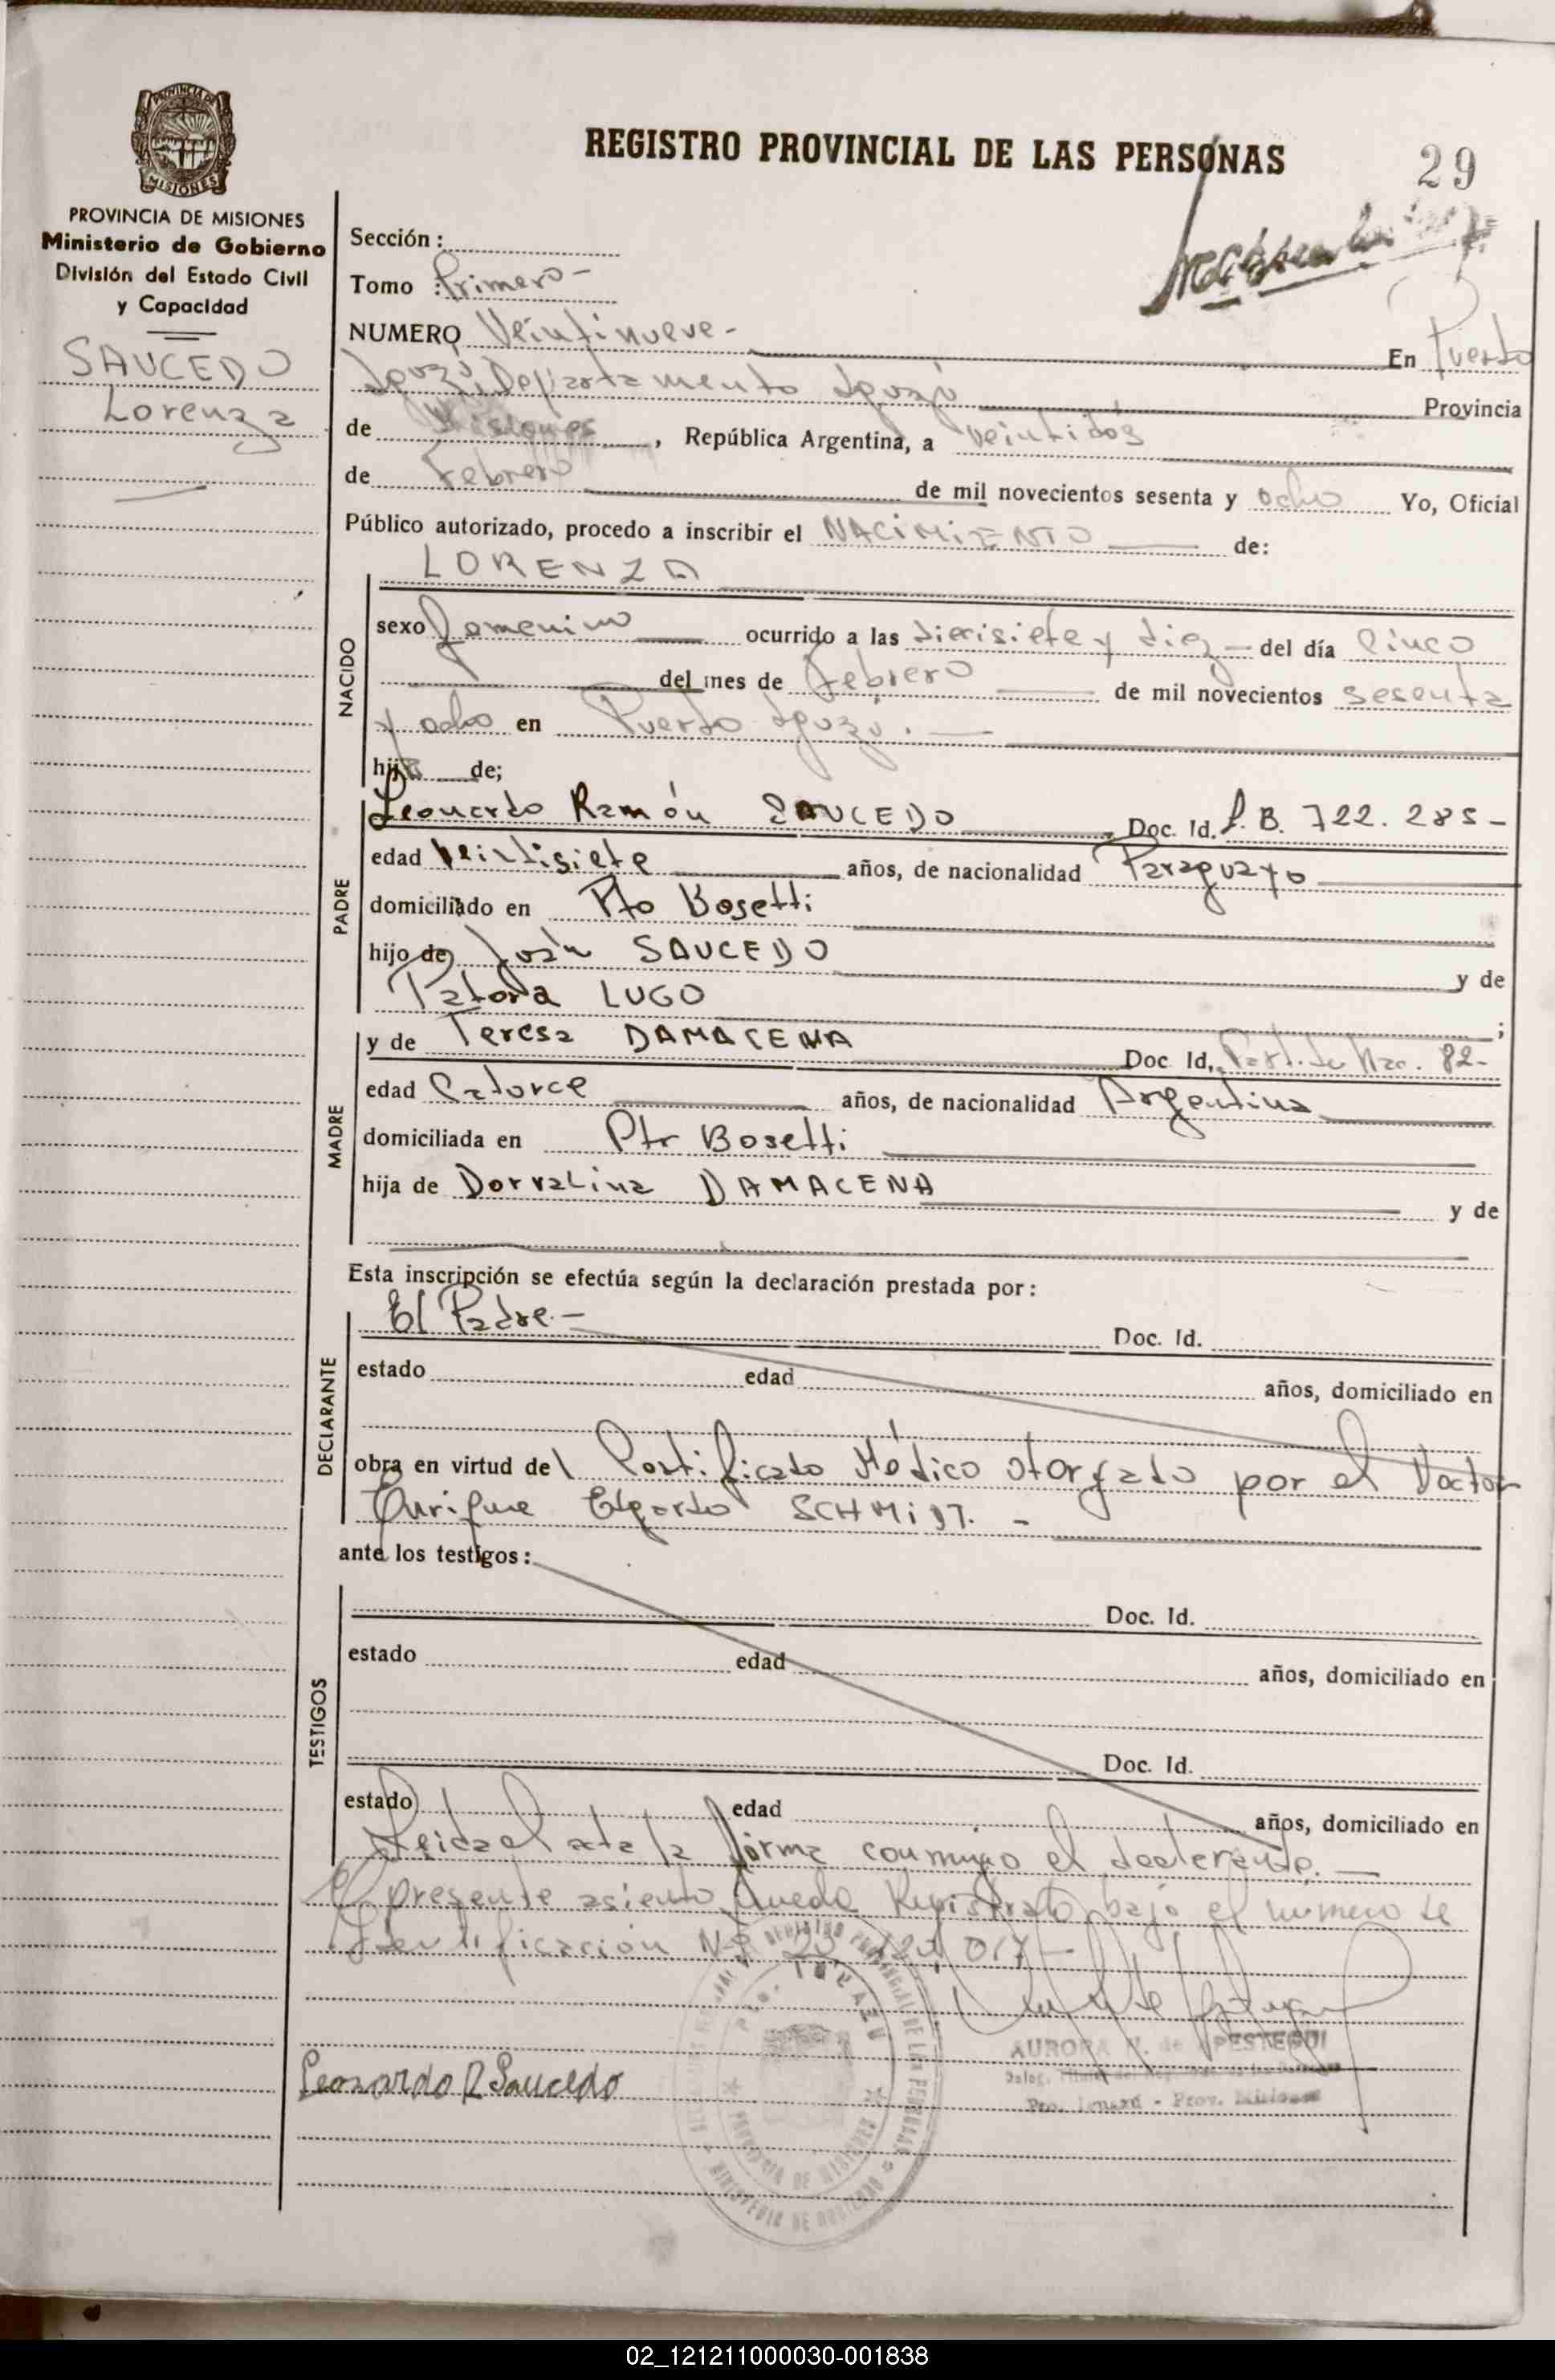 REGISTRO PROVINCIAL DE LAS PERSONAS
29
PROVINCIA DE MISIONES
Ministerio de Gobierno
División del Estado Civil
y Capacidad
SAUCEDO
Lorenza
Sección :
Tomo : Primero -
NUMERO Veintinueve - En Puerto
Iguazú, Departamento Iguazú Provincia
de Misiones , República Argentina, a veintidos
de Febrero de mil novecientos sesenta y ocho Yo, Oficial
Público autorizado, procedo a inscribir el NACIMIENTO de:
LORENZA
NACIDO
sexo femenino ocurrido a las diecisiete y diez del día cinco
del mes de febrero de mil novecientos sesenta
y ocho en Puerto Iguazú . —
hija de;
PADRE
Leonardo Ramón SAUCEDO Doc. Id. P. B. 722. 285 -
edad veintisiete años, de nacionalidad Paraguayo
domiciliado en Pto Bosetti
hijo de Juán SAUCEDO y de
LUGO ;
MADRE
y de Teresa DAMACENA Doc Id, Part. de Nac. 82 -
edad Catorce años, de nacionalidad Argentina
domiciliada en Pto Bosetti
hija de Dorvalina DAMACENA y de
Esta inscripción se efectúa según la declaración prestada por :
DECLARANTE
El Padre. - Doc. Id.
estado edad años, domiciliado en
obra en virtud del Certificado Médico otorgado por el Doctor
Enrique Edgardo SCHMIDT. -
ante los testigos :
TESTIGOS
Doc. Id.
estado edad años, domiciliado en
Doc. Id.
estado edad años, domiciliado en
Leida el acta la firma conmigo el declarante. —
El presente asiento queda Registrado bajo el numero de
Identificación Nº 20 017 —
PROVINCIA DE MISIONES
MINISTERIO DE GOBIERNO
AURORA de
Pto. Iguazú - Prov. Misiones
Leonardo R Saucedo
02_121211000030-001838